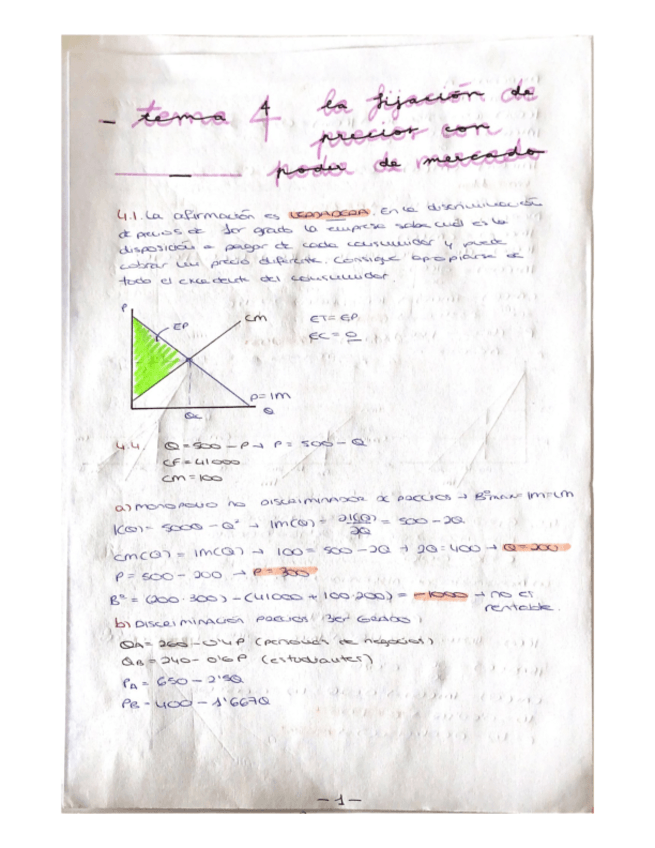 - tema 4 la fijación de
precios con
poder de mercado
4.1. La afirmación es VERDADERA. En la discriminación
de precios de 1er grado la empresa sabe cuál es la
disposición a pagar de cada consumidor y puede
cobrar un precio diferente. Consigue apropiarse de
todo el excedente del consumidor.
P
EP
CM
ET = EP
EC = 0
P = IM
Qc
Q
4.4. Q = 500 - P → P = 500 - Q
CF = 41000
CM = 100
a) MONOPOLIO NO DISCRIMINADOR DE PRECIOS → Bº MAX = IM = CM
I(Q) = 500Q - Q² → IM(Q) = ∂I(Q)/∂Q = 500 - 2Q
CM(Q) = IM(Q) → 100 = 500 - 2Q → 2Q = 400 → Q = 200
P = 500 - 200 → P = 300
Bº = (200·300) - (41000 + 100·200) = -1000 → no es
rentable.
b) DISCRIMINACIÓN PRECIOS 3er GRADO
QA = 260 - 0'4P (personas de negocios)
QB = 240 - 0'6P (estudiantes)
PA = 650 - 2'5Q
PB = 400 - 1'667Q
- 1 -